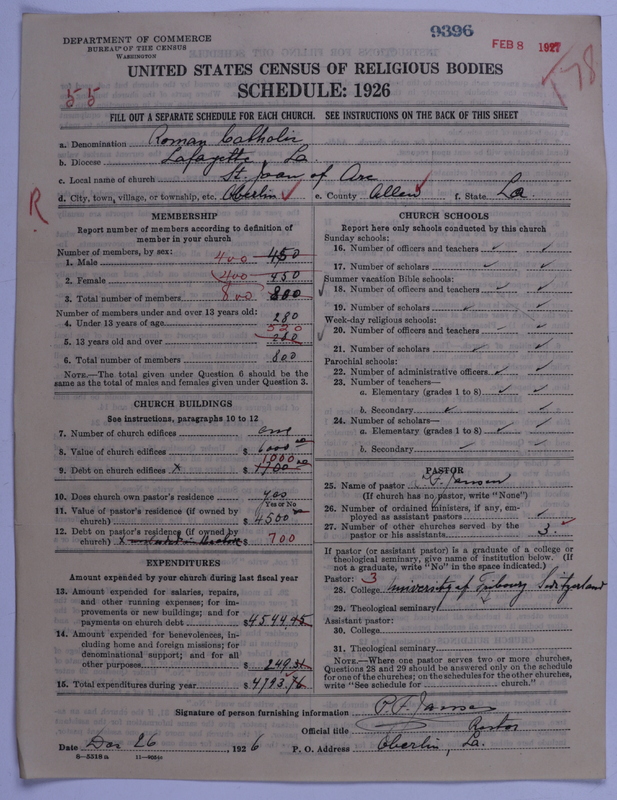 9396
DEPARTMENT OF COMMERCE
BUREAU OF THE CENSUS
WASHINGTON
FEB 8 1927
178
UNITED STATES CENSUS OF RELIGIOUS BODIES
SCHEDULE: 1926
55
FILL OUT A SEPARATE SCHEDULE FOR EACH CHURCH. SEE INSTRUCTIONS ON THE BACK OF THIS SHEET
a. Denomination Roman Catholic
b. Diocese Lafayette La.
c. Local name of church St. Joan of Arc
d. City, town, village, or township, etc. Oberlin e. County Allen f. State La.
R
MEMBERSHIP
Report number of members according to definition of
member in your church
Number of members, by sex:
1. Male 400 450
2. Female 400 450
3. Total number of members 800 800
Number of members under and over 13 years old:
4. Under 13 years of age 280
520
5. 13 years old and over
6. Total number of members 800
NOTE.—The total given under Question 6 should be
same as the total of males and females given under Question 3.
CHURCH BUILDINGS
See instructions, paragraphs 10 to 12
7. Number of church edifices one
8. Value of church edifices $ 6000 00
1000
9. Debt on church edifices X $ 1700 00
10. Does church own pastor's residence yes
Yes or No
11. Value of pastor's residence (if owned by
church) $ 4500
12. Debt on pastor's residence (if owned by
church) X $ 700
EXPENDITURES
Amount expended by your church during last fiscal year
13. Amount expended for salaries, repairs,
and other running expenses; for im-
provements or new buildings; and for
payments on church debt $ 4544 45
14. Amount expended for benevolences, in-
cluding home and foreign missions; for
denominational support; and for all
other purposes $ 249.31
15. Total expenditures during year $ 4793.76
CHURCH SCHOOLS
Report here only schools conducted by this church
Sunday schools:
16. Number of officers and teachers
17. Number of scholars
Summer vacation Bible schools:
18. Number of officers and teachers
19. Number of scholars
Week-day religious schools:
20. Number of officers and teachers
21. Number of scholars
Parochial schools:
22. Number of administrative officers
23. Number of teachers—
a. Elementary (grades 1 to 8)
b. Secondary
24. Number of scholars—
a. Elementary (grades 1 to 8)
b. Secondary
PASTOR
25. Name of pastor P. F. Jansen
(If church has no pastor, write "None")
26. Number of ordained ministers, if any, em-
ployed as assistant pastors
27. Number of other churches served by the
pastor or his assistants 3.
If pastor (or assistant pastor) is a graduate of a college or
theological seminary, give name of institution below. (If
not a graduate, write "No" in the space indicated.)
Pastor: 3
28. College University of Fribourg Switzerland
29. Theological seminary
Assistant pastor:
30. College
31. Theological seminary
NOTE.—Where one pastor serves two or more churches,
Questions 28 and 29 should be answered only on the schedule
for one of the churches; on the schedules for the other churches,
write "See schedule for church."
Signature of person furnishing information P. F. Jansen
Official title Pastor
Date Dec 26, 1926 P. O. Address Oberlin, La.
8—5518a 11—9054c